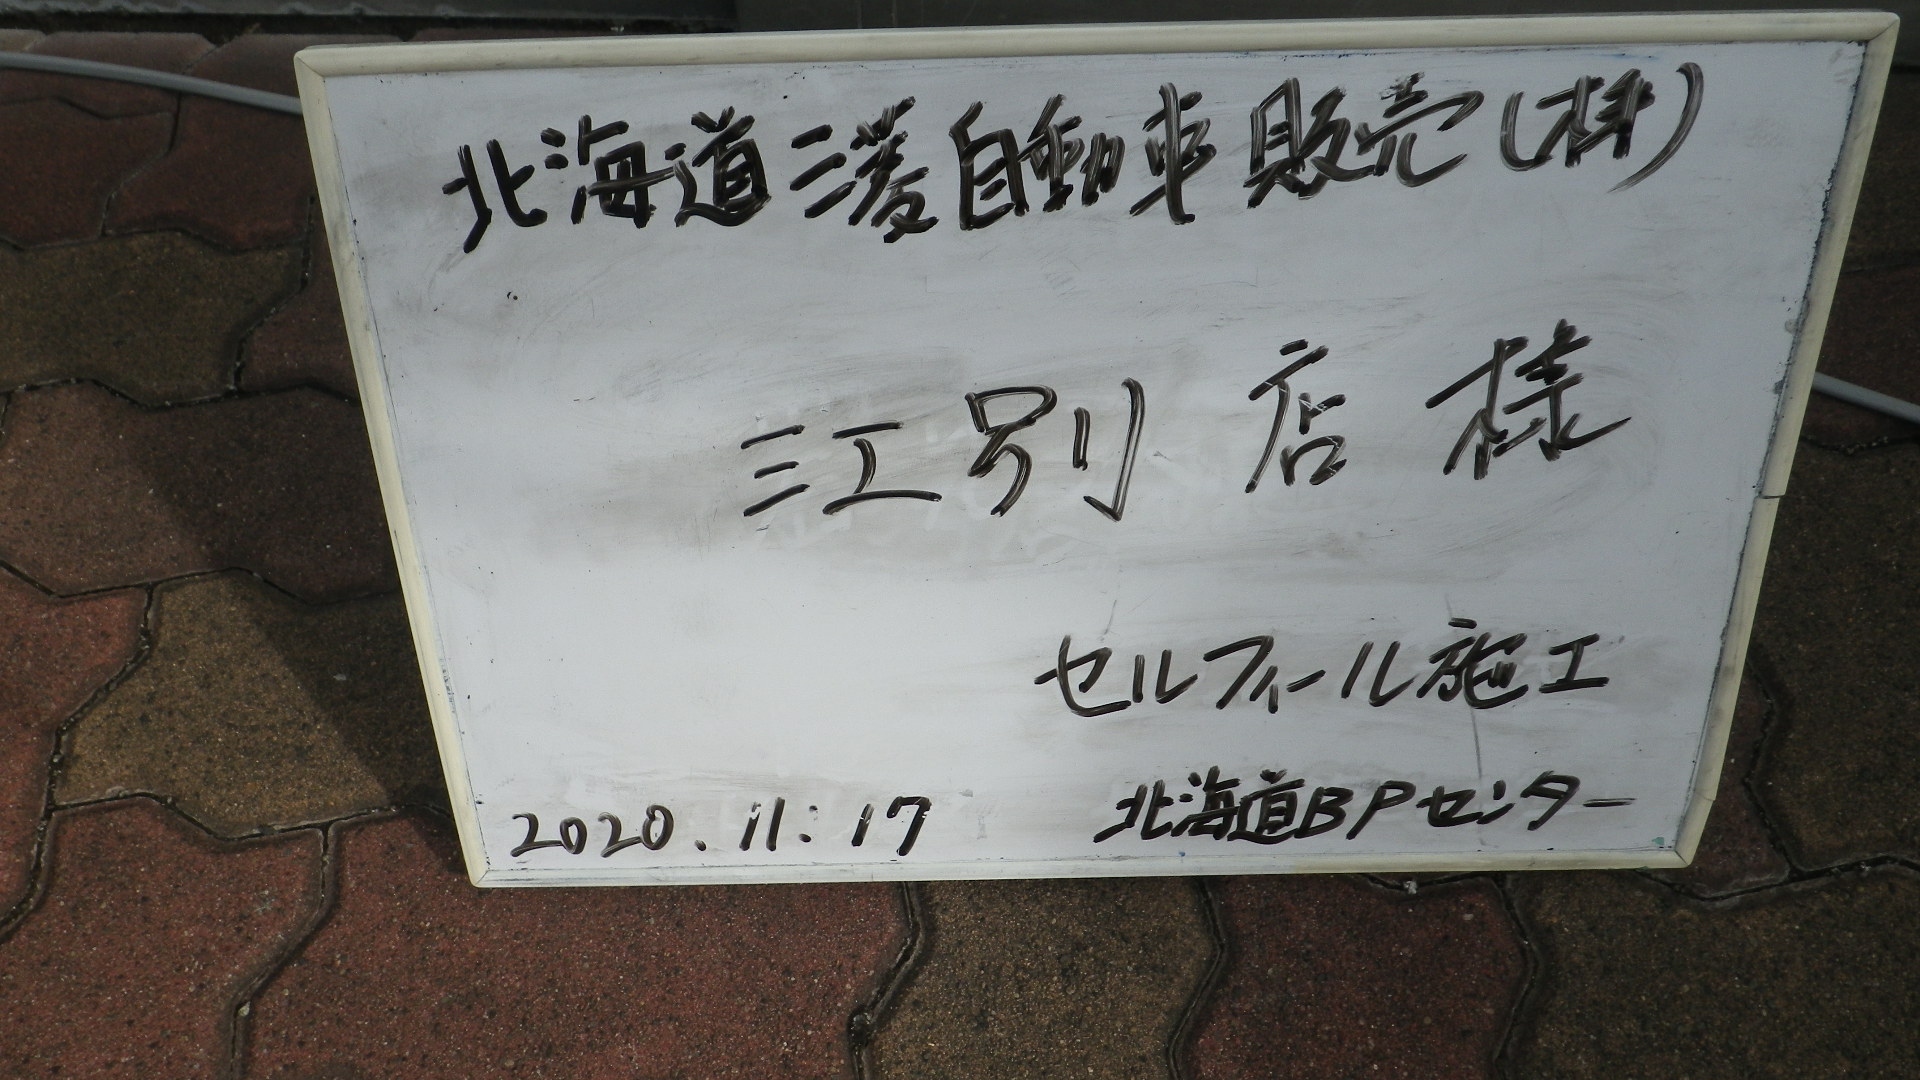 北海道三菱自動車販売(株)
江別店様
セルフィール施工
北海道BPセンター
2020.11.17